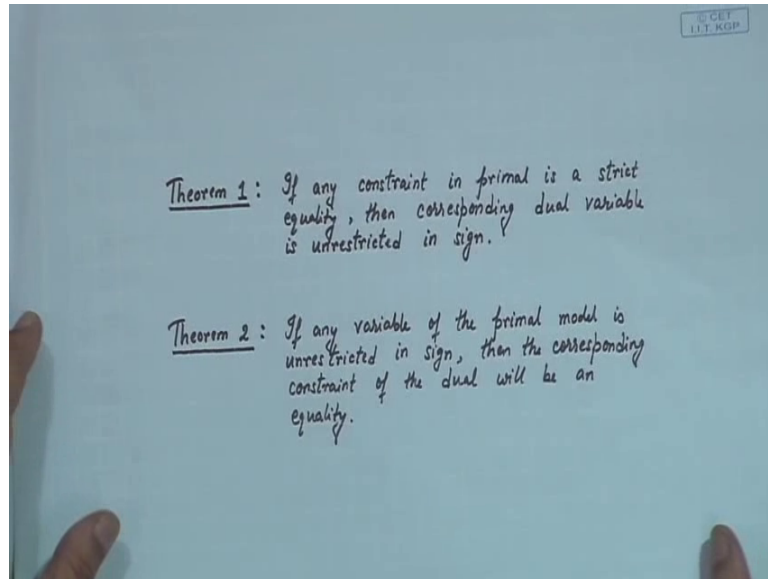 © CET
I.I.T. KGP
Theorem 1 : If any constraint in primal is a strict
equality, then corresponding dual variable
is unrestricted in sign.
Theorem 2 : If any variable of the primal model is
unrestricted in sign, then the corresponding
constraint of the dual will be an
equality.